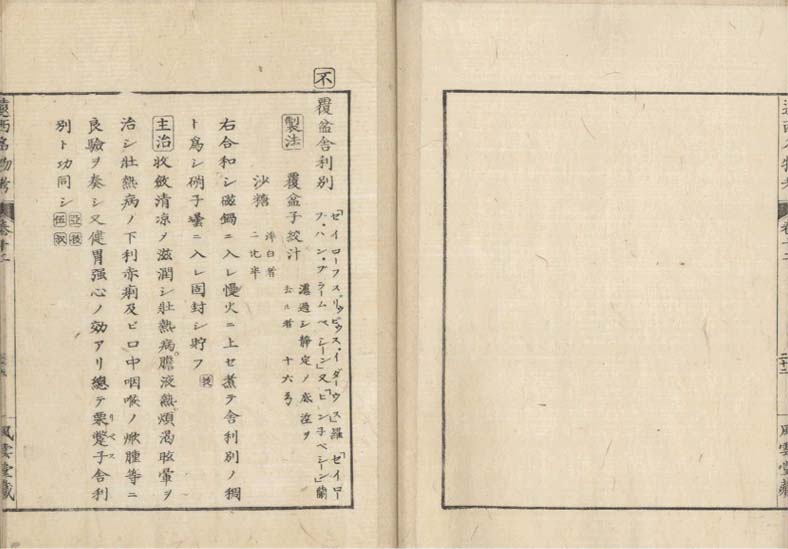 遠西名物考
卷十二
二十二
風雲堂藏
不 覆盆舎利別 「セイローフス」「リッビュス・イダーウス」羅「セイロー
フ・ハン・フラームベシーン」又「ヒン子ベシーン」蘭
製法 覆盆子絞汁 濾過シ静定ノ底滓ヲ
去ル者 十六
沙糖 浄白者
二比半
右合和シ磁鍋ニ入レ慢火ニ上セ煮テ舎利別ノ稠
ト爲シ硝子壜ニ入レ固封シ貯フ
主治 收斂清凉ノ滋潤シ壯熱病膽液熱煩渇眩暈ヲ
治シ壯熱病ノ下利赤痢及ビ口中咽喉ノ焮腫等ニ
良驗ヲ奏シ又健胃强心ノ効アリ總テ栗鼈子リベス舎利
別ト功同シ
遠西名物考
卷十二
風雲堂藏